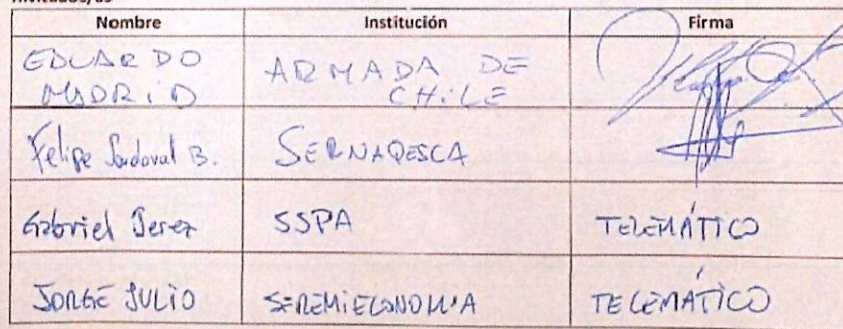 Invitados/as
Nombre Institución Firma
EDUARDO ARMADA DE
MADRID CHILE
Felipe Sandoval B. SERNAPESCA
Gabriel Jerez SSPA TELEMÁTICO
JORGE JULIO SEREMIECONOMIA TELEMÁTICO